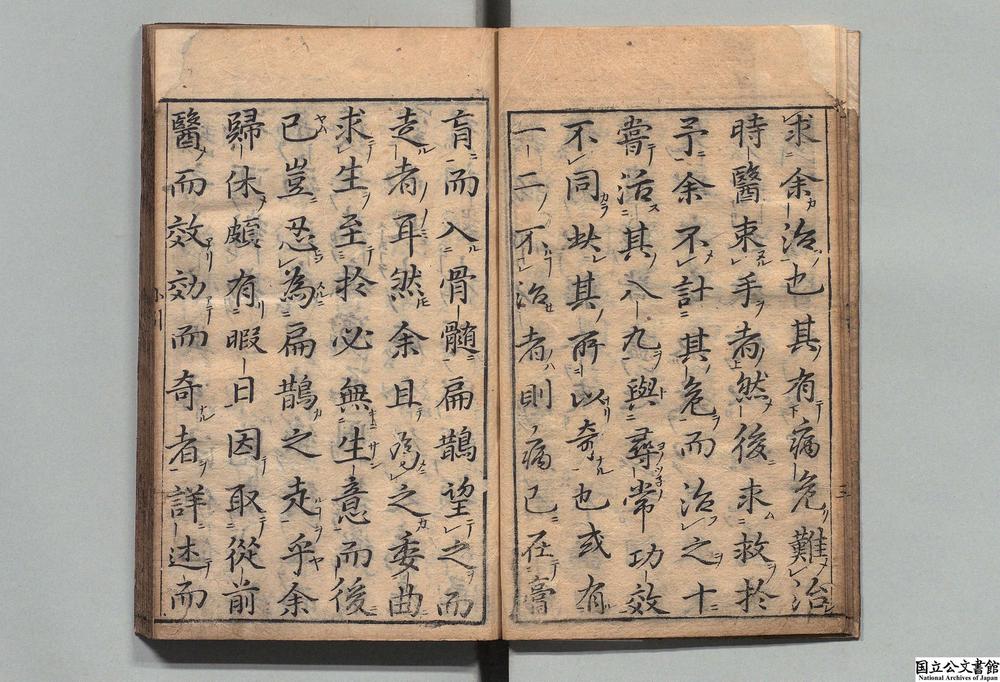 求余治也其有病危難治
時醫束手者然後求救於
予余不計其危而治之十
嘗活其八九與尋常功效
不同此其所以奇也或有
一二不治者則病已在膏
肓而入骨髓扁鵲望之而
走者耳然余且為之委曲
求生至於必無生意而後
已豈忍為扁鵲之走乎余
歸休頗有暇日因取從前
醫而效効而奇者詳述而
国立公文書館
National Archives of Japan